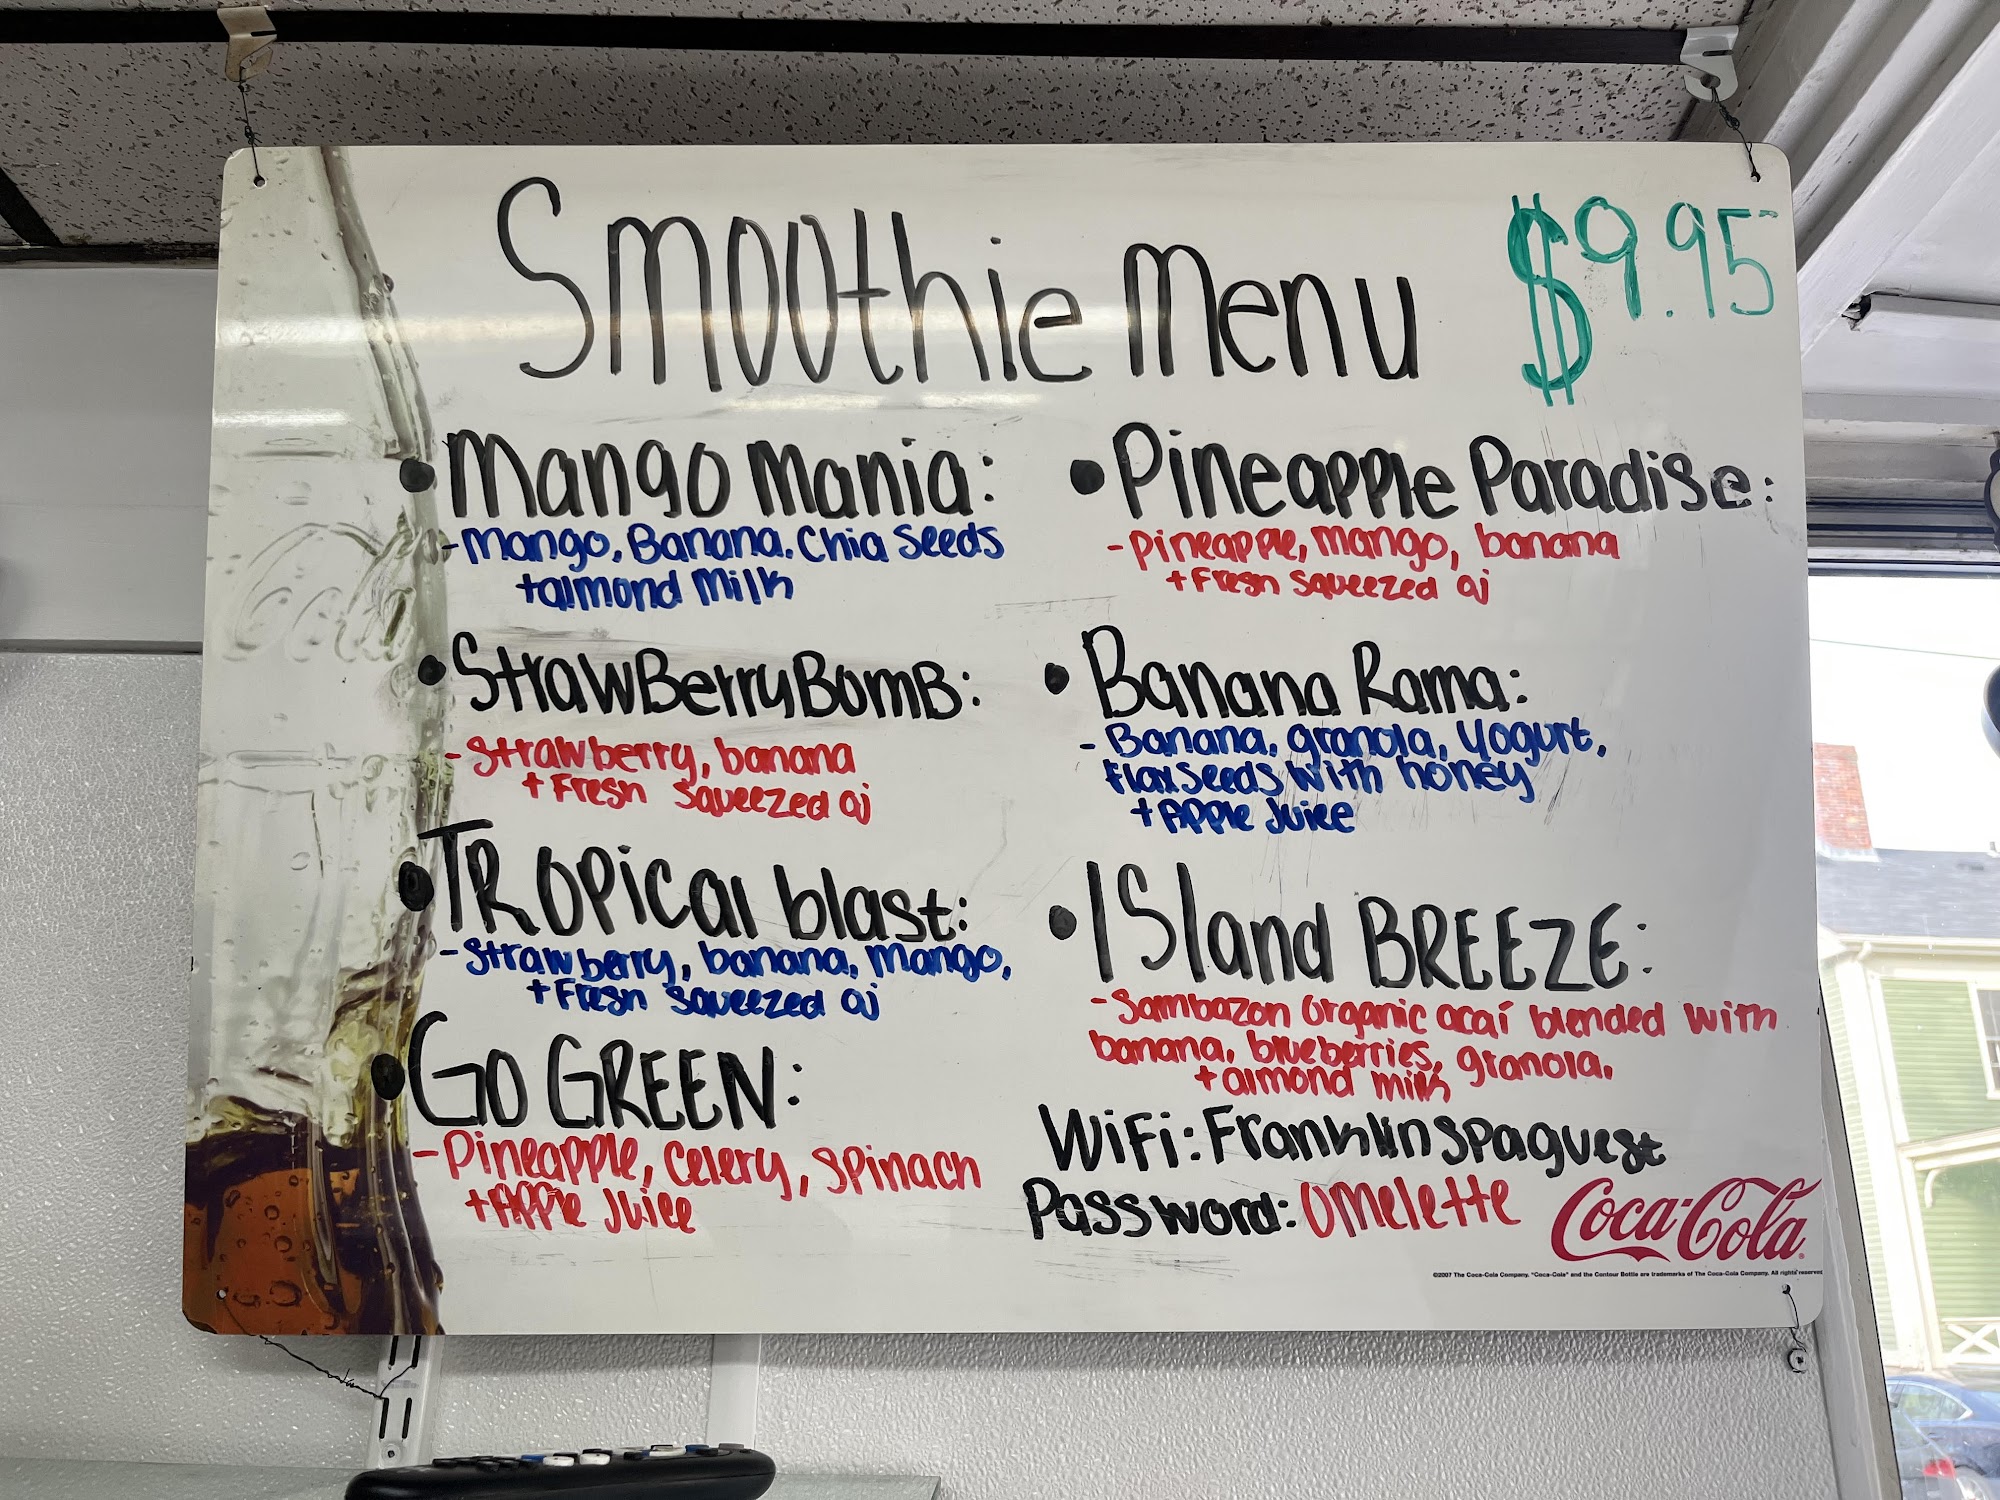 Smoothie Menu
$9.95
• Mango Mania:
- Mango, Banana, Chia Seeds
+almond Milk
• StrawBerry BomB:
- Strawberry, banana
+ Fresh Squeezed oj
• TROPical blast:
- Strawberry, banana, mango,
+ Fresh squeezed oj
• GO GREEN:
- Pineapple, Celery, Spinach
+Apple Juice
• Pineapple Paradise:
- pineapple, mango, banana
+ Fresh squeezed oj
• Banana Rama:
- Banana, granola, Yogurt,
FlaxSeeds With honey
+ Apple Juice
• ISland BREEZE:
- Sambazon Organic acaí blended with
banana, blueberries, granola,
+ almond milk
WiFi: Franklinspaguest
Password: Omelette
Coca-Cola
©2007 The Coca-Cola Company. "Coca-Cola" and the Contour Bottle are trademarks of The Coca-Cola Company. All rights reserved
Cola